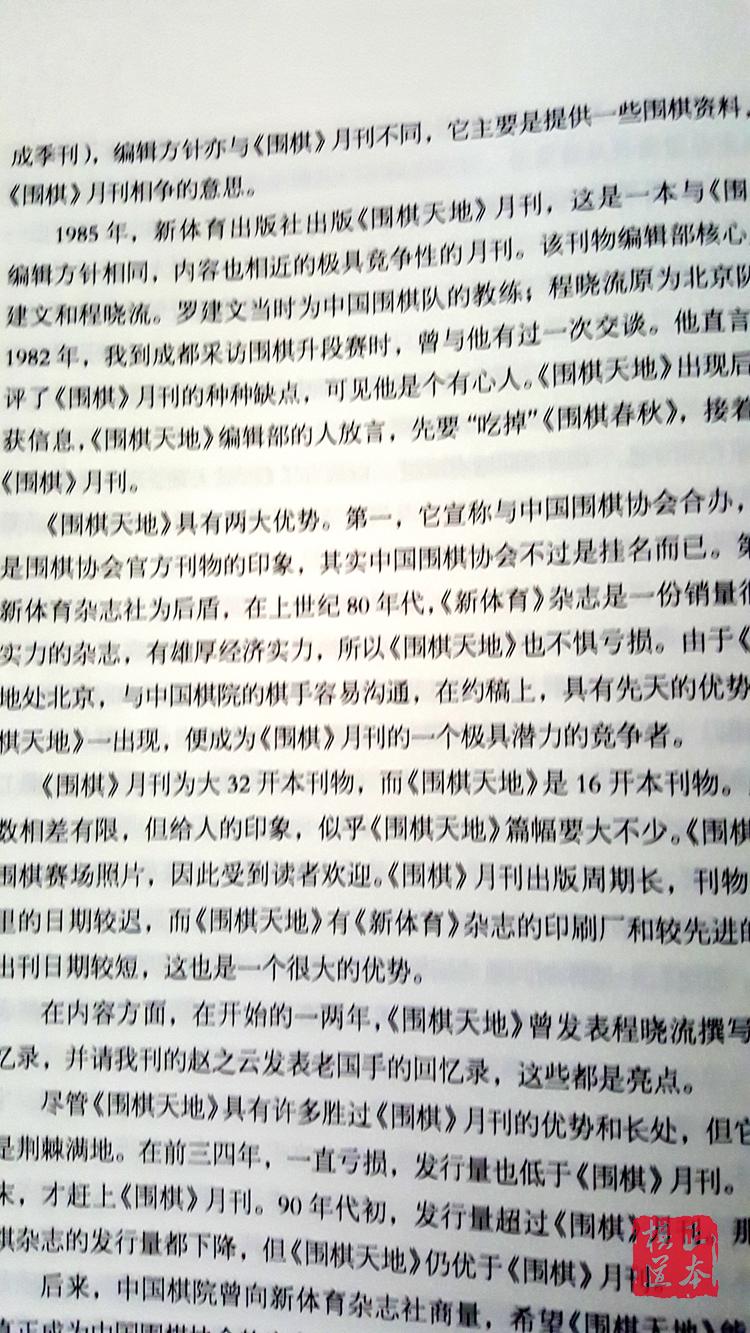 成季刊），编辑方针亦与《围棋》月刊不同，它主要是提供一些围棋资料，
《围棋》月刊相争的意思。
1985年，新体育出版社出版《围棋天地》月刊，这是一本与《围
编辑方针相同，内容也相近的极具竞争性的月刊。该刊物编辑部核心
建文和程晓流。罗建文当时为中国围棋队的教练；程晓流原为北京队
1982年，我到成都采访围棋升段赛时，曾与他有过一次交谈。他直言
评了《围棋》月刊的种种缺点，可见他是个有心人。《围棋天地》出现后
获信息，《围棋天地》编辑部的人放言，先要“吃掉”《围棋春秋》，接着
《围棋》月刊。
《围棋天地》具有两大优势。第一，它宣称与中国围棋协会合办，
是围棋协会官方刊物的印象，其实中国围棋协会不过是挂名而已。第
新体育杂志社为后盾，在上世纪80年代，《新体育》杂志是一份销量很
实力的杂志，有雄厚经济实力，所以《围棋天地》也不惧亏损。由于《
地处北京，与中国棋院的棋手容易沟通，在约稿上，具有先天的优势
棋天地》一出现，便成为《围棋》月刊的一个极具潜力的竞争者。
《围棋》月刊为大32开本刊物，而《围棋天地》是16开本刊物。
数相差有限，但给人的印象，似乎《围棋天地》篇幅要大不少。《围棋
围棋赛场照片，因此受到读者欢迎。《围棋》月刊出版周期长，刊物
里的日期较迟，而《围棋天地》有《新体育》杂志的印刷厂和较先进的
出刊日期较短，这也是一个很大的优势。
在内容方面，在开始的一两年，《围棋天地》曾发表程晓流撰写
忆录，并请我刊的赵之云发表老国手的回忆录，这些都是亮点。
尽管《围棋天地》具有许多胜过《围棋》月刊的优势和长处，但它
是荆棘满地。在前三四年，一直亏损，发行量也低于《围棋》月刊。
末，才赶上《围棋》月刊。90年代初，发行量超过《围棋》月刊，那
棋杂志的发行量都下降，但《围棋天地》仍优于《围棋》月刊。
后来，中国棋院曾向新体育杂志社商量，希望《围棋天地》能
真正成为中国围棋协会的
棋道
正本